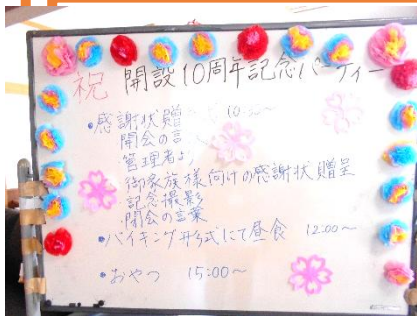 祝 開設10周年記念パーティー
・感謝状贈 10:30〜
開会の言
管理者よ
御家族様向けの感謝状贈呈
記念撮影
閉会の言葉
・バイキング形式にて昼食 12:00〜
・おやつ 15:00〜